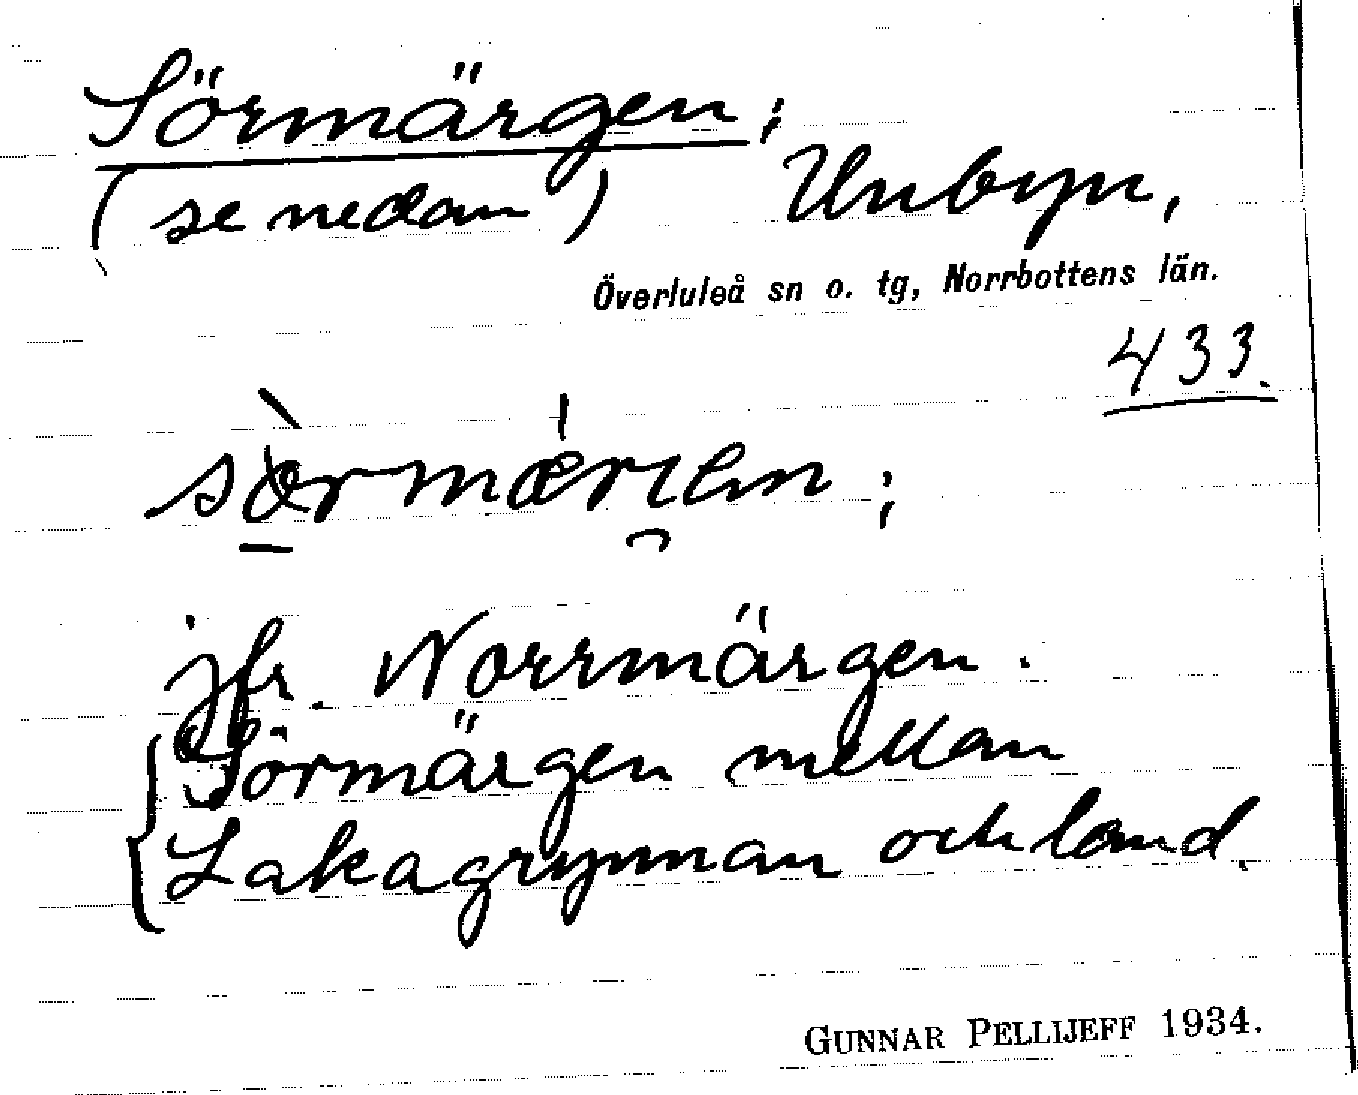 Sörmärgen;
(se nedan) Unbyn,
Överluleå sn o. tg, Norrbottens län.
433.
sò̱rmǽrı̯en;
jfr. Norrmärgen.
{Sörmärgen mellan
Lakagrynnan och land.
GUNNAR PELLIJEFF 1934.